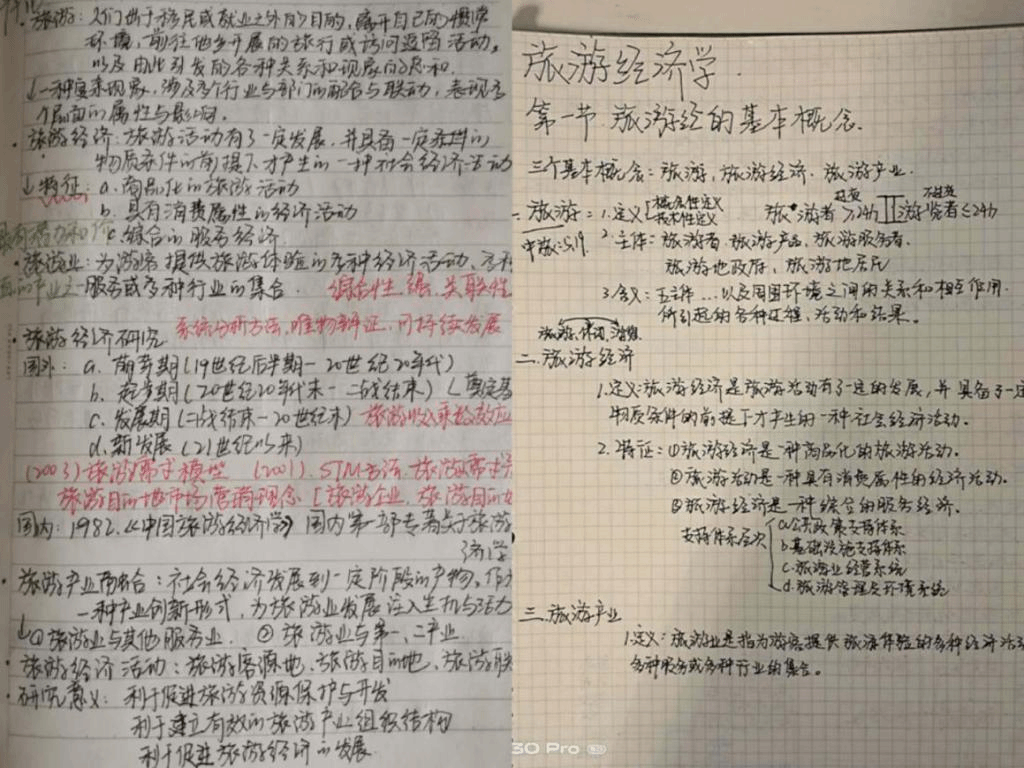 旅游：人们出于移民或就业之外的目的，离开自己的惯常
环境，前往他乡开展的旅行或访问逗留活动，
以及由此引发的各种关系和现象的总和.
↓一种复杂现象，涉及多个行业与部门的配合与联动，表现多
个层面的属性与影响.
旅游经济：旅游活动有了一定发展，并具备一定条件的
物质条件的前提下才产生的一种社会经济活动
↓特征：a.商品化的旅游活动
b.具有消费属性的经济活动
c.综合的服务经济
旅游业：为游客提供旅游体验的各种经济活动、各种
服务或多种行业的集合. 综合性 关联性
旅游经济研究 系统分析方法，唯物辩证，可持续发展
国外：a.萌芽期(19世纪后半期—20世纪20年代)
b.起步期(20世纪20年代末—二战结束)
c.发展期(二战结束—20世纪末) 旅游收入乘数效应
d.新发展(21世纪以来)
(2003)旅游需求模型 (2001).STM方法.旅游需求
旅游目的地市场营销理念[旅游企业，旅游目的地
国内：1982.《中国旅游经济学》国内第一部专著关于旅游
济学
旅游产业融合：社会经济发展到一定阶段的产物，作为
一种产业创新形式，为旅游业发展注入生机与活力
↓①旅游业与其他服务业. ②旅游业与第一、二产业.
旅游经济活动：旅游客源地、旅游目的地、旅游联
研究意义：利于促进旅游资源保护与开发
利于建立有效的旅游产业组织结构
利于促进旅游经济的发展.
旅游经济学.
第一节 旅游经的基本概念.
三个基本概念：旅游，旅游经济、旅游产业.
一.旅游：1.定义[概念性定义 技术性定义 旅游者≥24h 游览者≤24h
中旅：5.19 2.主体：旅游者.旅游产品，旅游服务者.
旅游地政府，旅游地居民
3.含义：五主体…以及周围环境之间的关系和相互作用.
所引起的各种过程，活动和结果。
二.旅游经济
1.定义：旅游经济是旅游活动有了一定的发展，并具备了一定
物质条件的前提下才产生的一种社会经济活动。
2.特征：①旅游经济是一种商品化的旅游活动.
②旅游活动是一种具有消费属性的经济活动.
③旅游经济是一种综合的服务经济.
支持体系层次 a.公共政策支持体系
b.基础设施支持体系
c.旅游业经营系统
d.旅游管理及环境系统
三.旅游产业
1.定义：旅游业是指为游客提供旅游体验的各种经济活动
各种服务或多种行业的集合。
30 Pro 5G